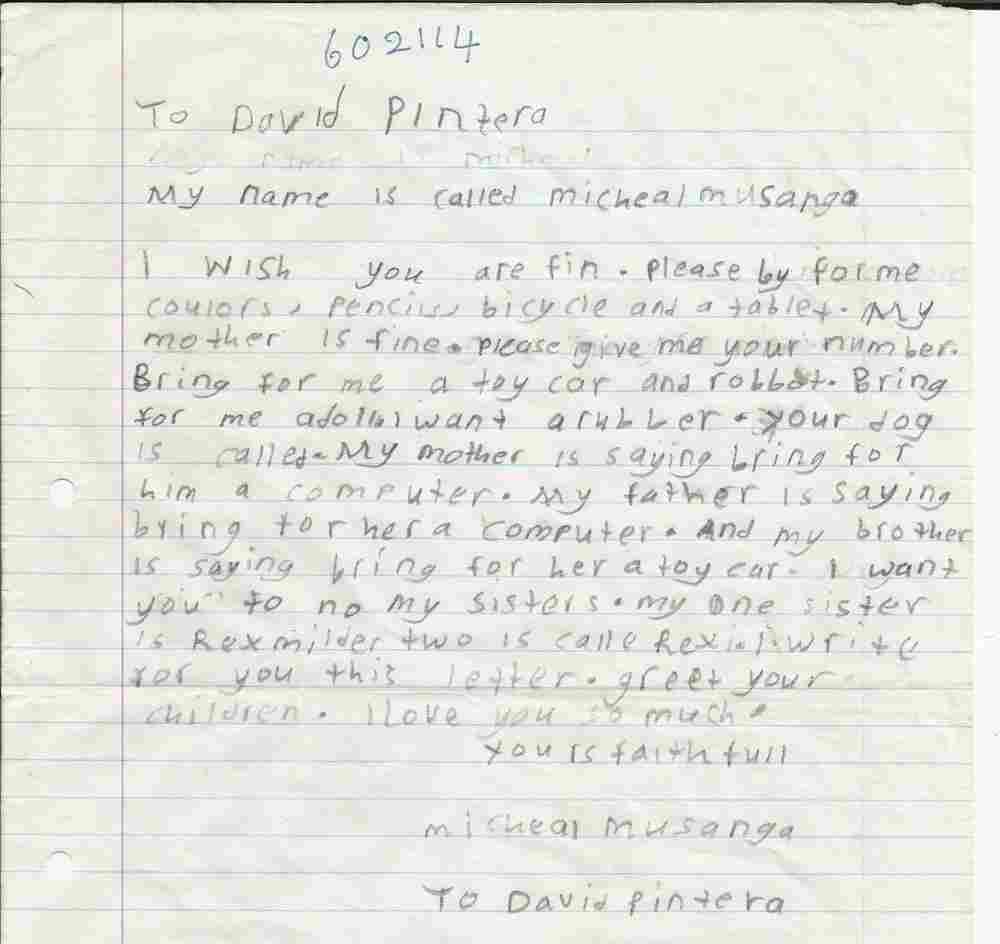 602114
To David Pintera
My name is called micheal musanga
I wish you are fin. please by for me
coulors, pencils, bicycle and a tablet. My
mother is fine. please give me your number.
Bring for me a toy car and robbot. Bring
for me adoll. I want arubber. your dog
is called. My mother is saying bring for
him a computer. My father is saying
bring for her a computer. And my brother
is saying bring for her a toy car. I want
you to no my sisters. my one sister
is Rexmilder two is calle Rexi write
for you this letter. greet your
children. I love you so much.
yours faithfull
micheal musanga
To David pintera